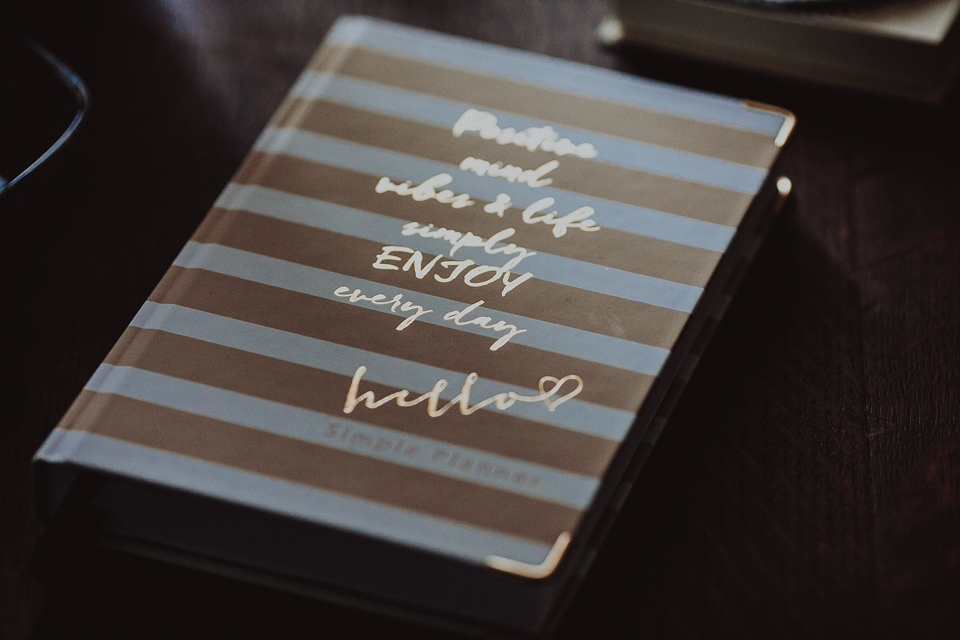 Positive
mind
vibes & life
simply
ENJOY
every day
hello
Simple Planner